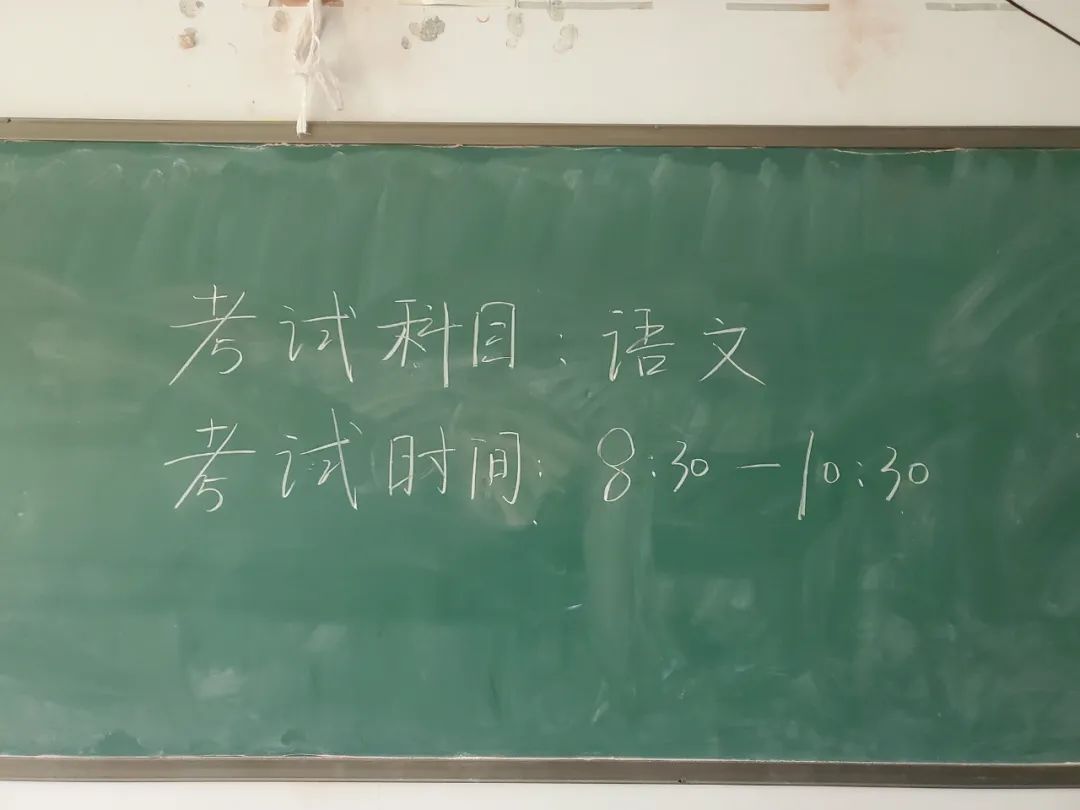 考试科目:语文
考试时间:8:30—10:30